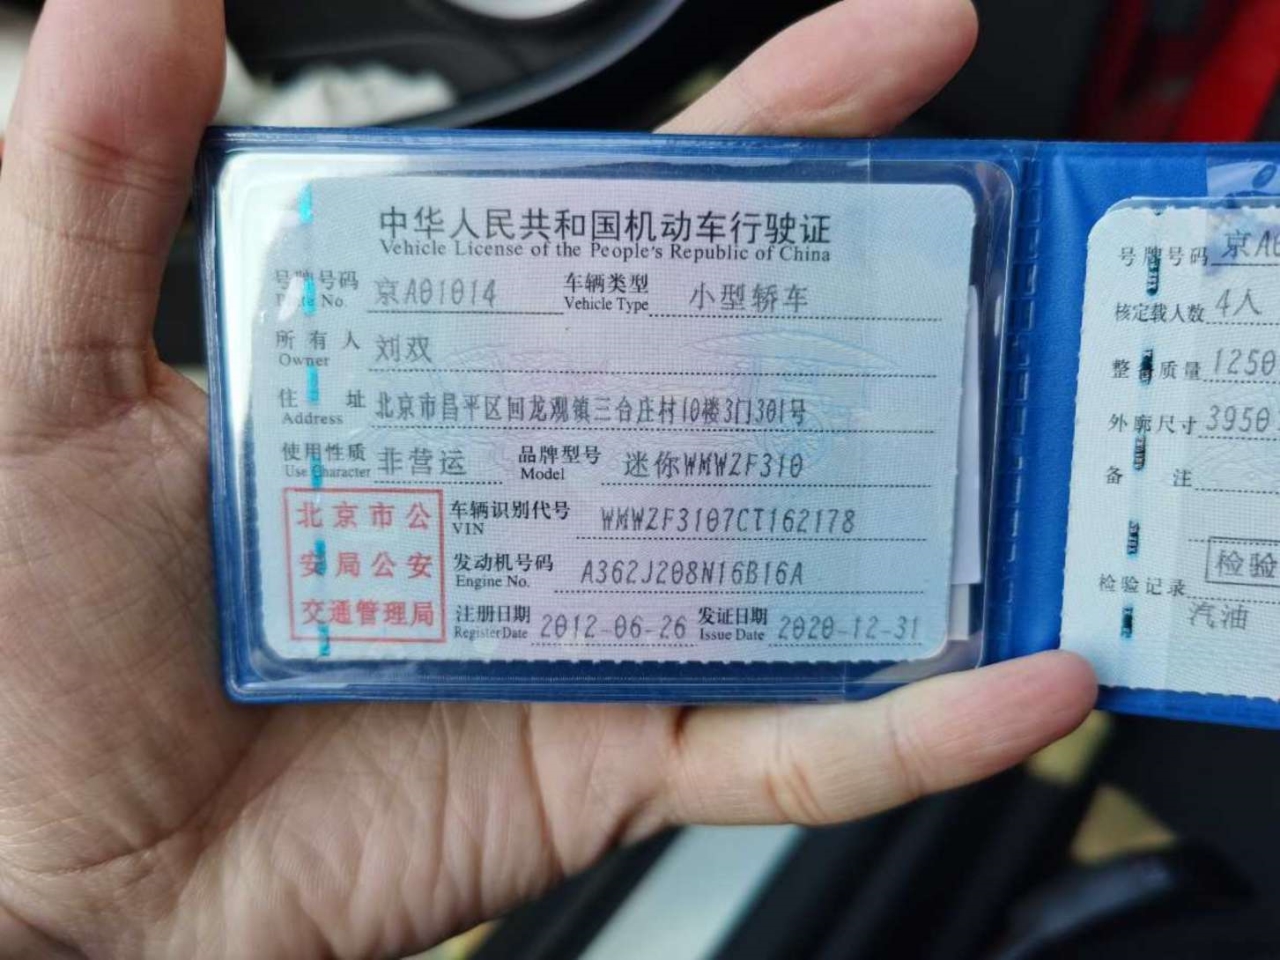 中华人民共和国机动车行驶证
Vehicle License of the People's Republic of China
号牌号码 京A01014 车辆类型 小型轿车
Plate No. Vehicle Type
所有人 刘双
Owner
住址 北京市昌平区回龙观镇三合庄村10楼3门301号
Address
使用性质 非营运 品牌型号 迷你WMWZF310
Use Character Model
北京市公
安局公安
交通管理局
车辆识别代号 WMWZF3107CT162178
VIN
发动机号码 A362J208N16B16A
Engine No.
注册日期 2012-06-26 发证日期 2020-12-31
Register Date Issue Date
号牌号码 京A0
核定载人数 4人
整备质量 1250
外廓尺寸 3950
备注
检验
检验记录
汽油